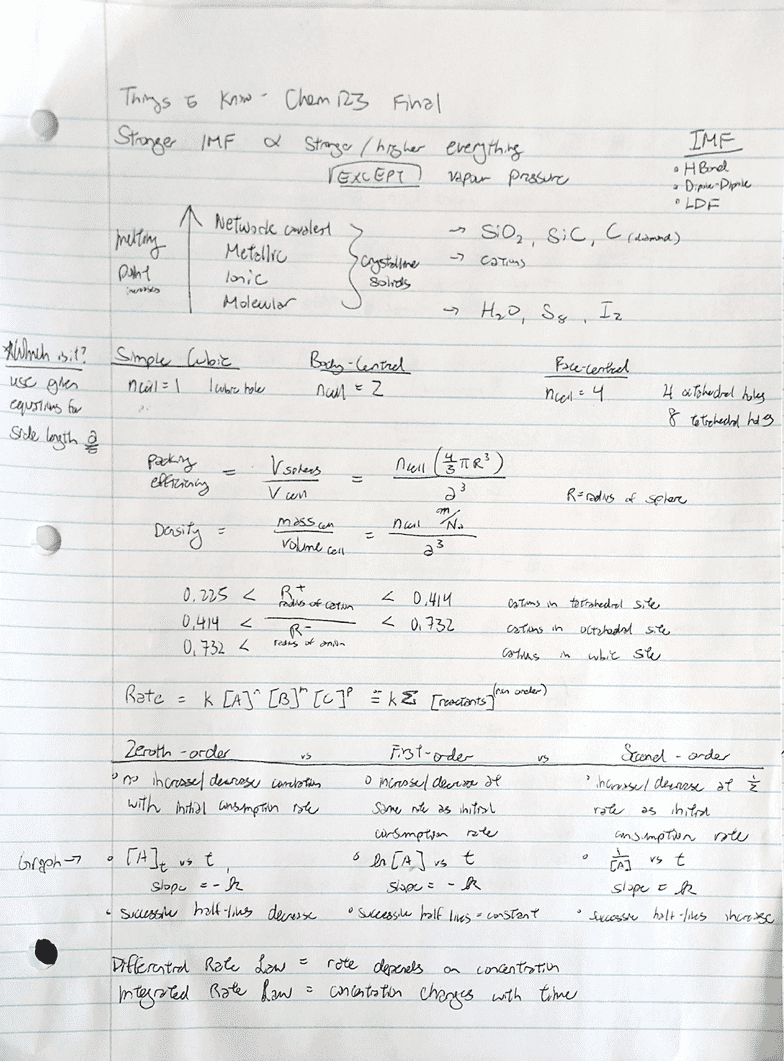 Things to Know - Chem 123 Final
Stronger IMF ∝ stronger/higher everything
EXCEPT vapour pressure
IMF
• H Bond
• Dipole-Dipole
• LDF
melting point increases
Network covalent → SiO₂, SiC, C (diamond)
Metallic → cations
Ionic
Molecular → H₂O, S₈, I₂
Crystalline solids
*Which is it?
use given
equations for
side length a
Simple Cubic Body-Central Face-central
n cell = 1 1 cubic hole n cell = 2 n cell = 4 4 octahedral holes
8 tetrahedral holes
Packing efficiency = V spheres / V cell = n cell (4/3 πR³) / a³ R = radius of sphere
Density = mass cell / volume cell = n cell m/Na / a³
0.225 < R⁺ radius of cation < 0.414 cations in tetrahedral site
0.414 < / < 0.732 cations in octahedral site
0.732 < R⁻ radius of anion cations in cubic site
Rate = k [A]ⁿ [B]ᵐ [C]ᵖ = k Σ [reactants] (rxn order)
Zeroth-order vs First-order vs Second-order
• no increase/decrease correlation • increase/decrease at • increase/decrease at ½
with initial consumption rate same rate as initial rate as initial
consumption rate consumption rate
Graph → • [A]t vs t • ln [A] vs t • 1/[A] vs t
slope = -k slope = -k slope = k
• successive half-lives decrease • successive half lives = constant • successive half-lives increase
Differential Rate Law = rate depends on concentration
Integrated Rate Law = concentration changes with time